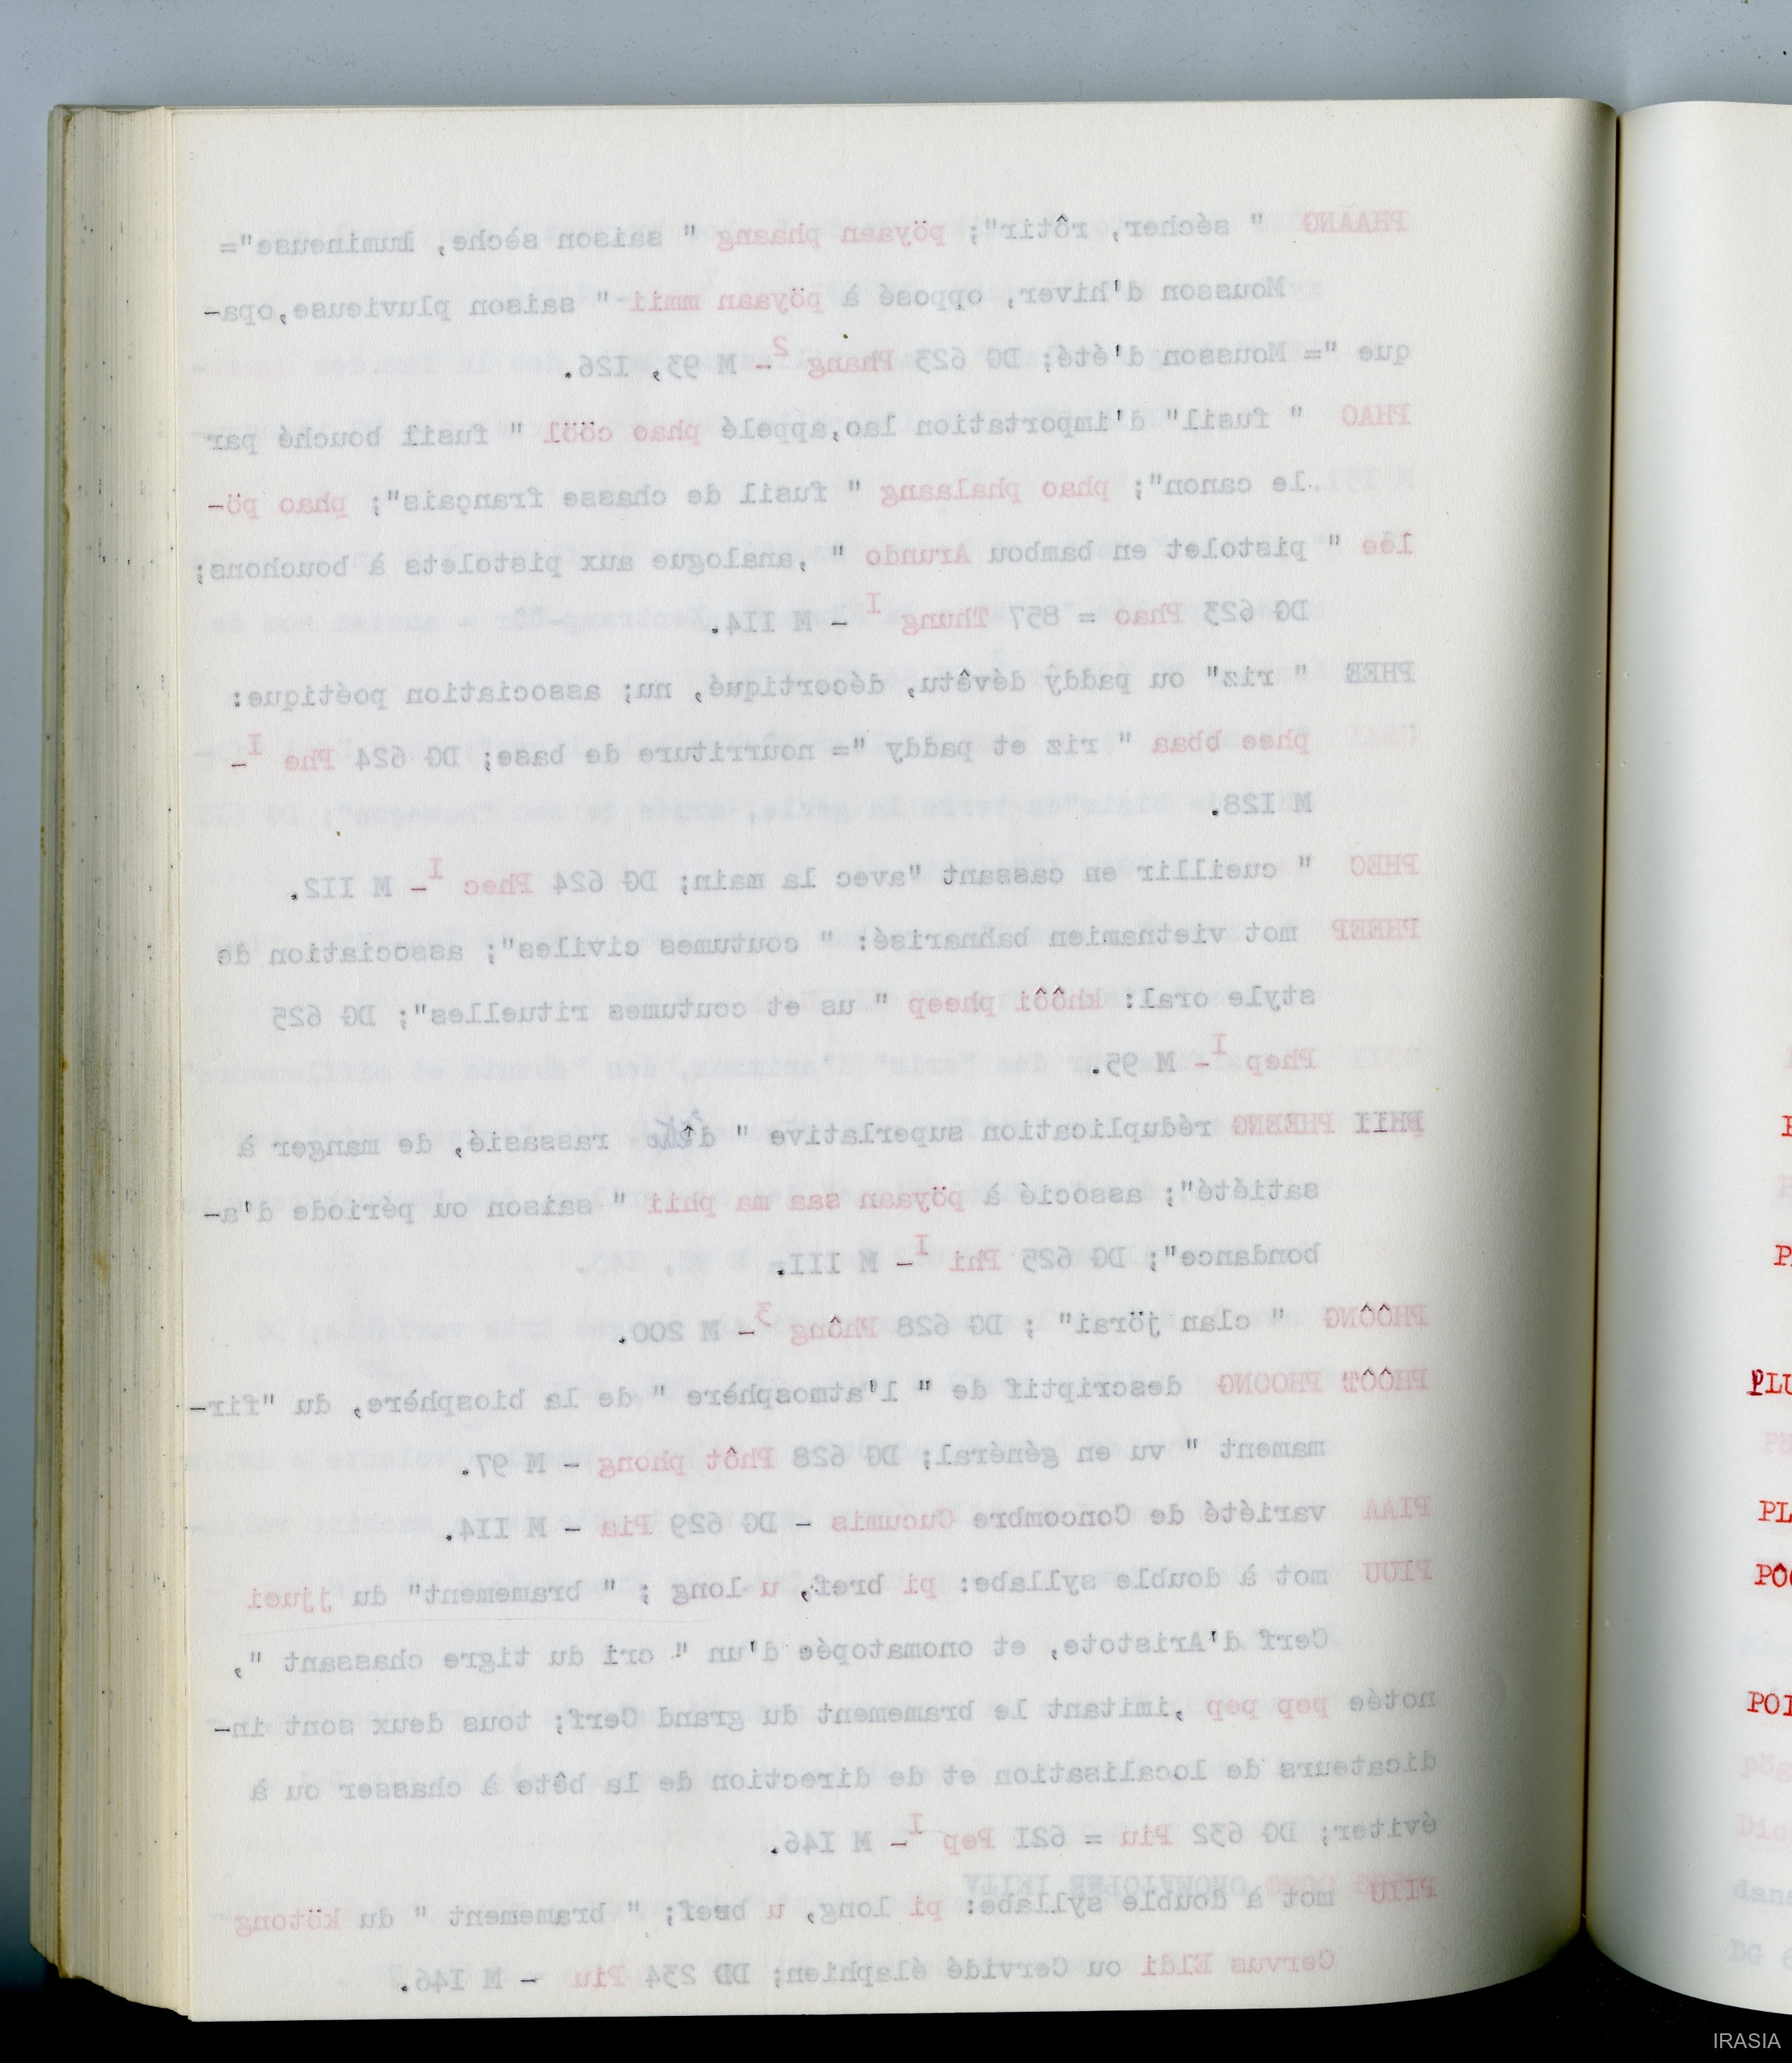 PHAANG " sécher, rôtir"; pöyaan phaang " saison sèche, lumineuse"=
Mousson d'hiver, opposé à pöyaan mmii " saison pluvieuse,opa-
que "= Mousson d'été; DG 623 Phang 2 - M 93, I26.
PHAO " fusil" d'importation lao,appelé phao cööl " fusil bouché par
le canon"; phao phalaang " fusil de chasse français"; phao pö-
lée " pistolet en bambou Arundo " ,analogue aux pistolets à bouchons;
DG 623 Phao = 857 Thung I - M II4.
PHEE " riz" ou paddy dévêtu, décortiqué, nu; association poétique:
phee bbaa " riz et paddy "= nourriture de base; DG 624 Phe I-
M I28.
PHEC " cueillir en cassant "avec la main; DG 624 Phec I- M II2.
PHEEP mot vietnamien bahnarisé: " coutumes civiles"; association de
style oral: khôôi pheep " us et coutumes rituelles"; DG 625
Phep I- M 95.
PHII PHEENG réduplication superlative " rassasié, de manger à
satiété"; associé à pöyaan saa ma phii " saison ou période d'a-
bondance"; DG 625 Phi I- M III.
PHÔÔNG " clan jörai" ; DG 628 Phông 3- M 200.
PHÔÔT PHOONG descriptif de " l'atmosphère " de la biosphère, du "fir-
mament " vu en général; DG 628 Phôt phong - M 97.
PIAA variété de Concombre Cucumis - DG 629 Pia - M II4.
PIUU mot à double syllabe: pi bref, u long ; " bramement" du jjuei
Cerf d'Aristote, et onomatopée d'un " cri du tigre chassant ",
notée pep pep ,imitant le bramement du grand Cerf; tous deux sont in-
dicateurs de localisation et de direction de la bête à chasser ou à
éviter; DG 632 Piu = 62I Pep I- M I46.
PIIU mot à double syllabe: pi long, u bref; " bramement " du kötong
Cervus Eldi ou Cervidé élaphien; DD 234 Piu - M I46.
PLU
PL
POI
IRASIA